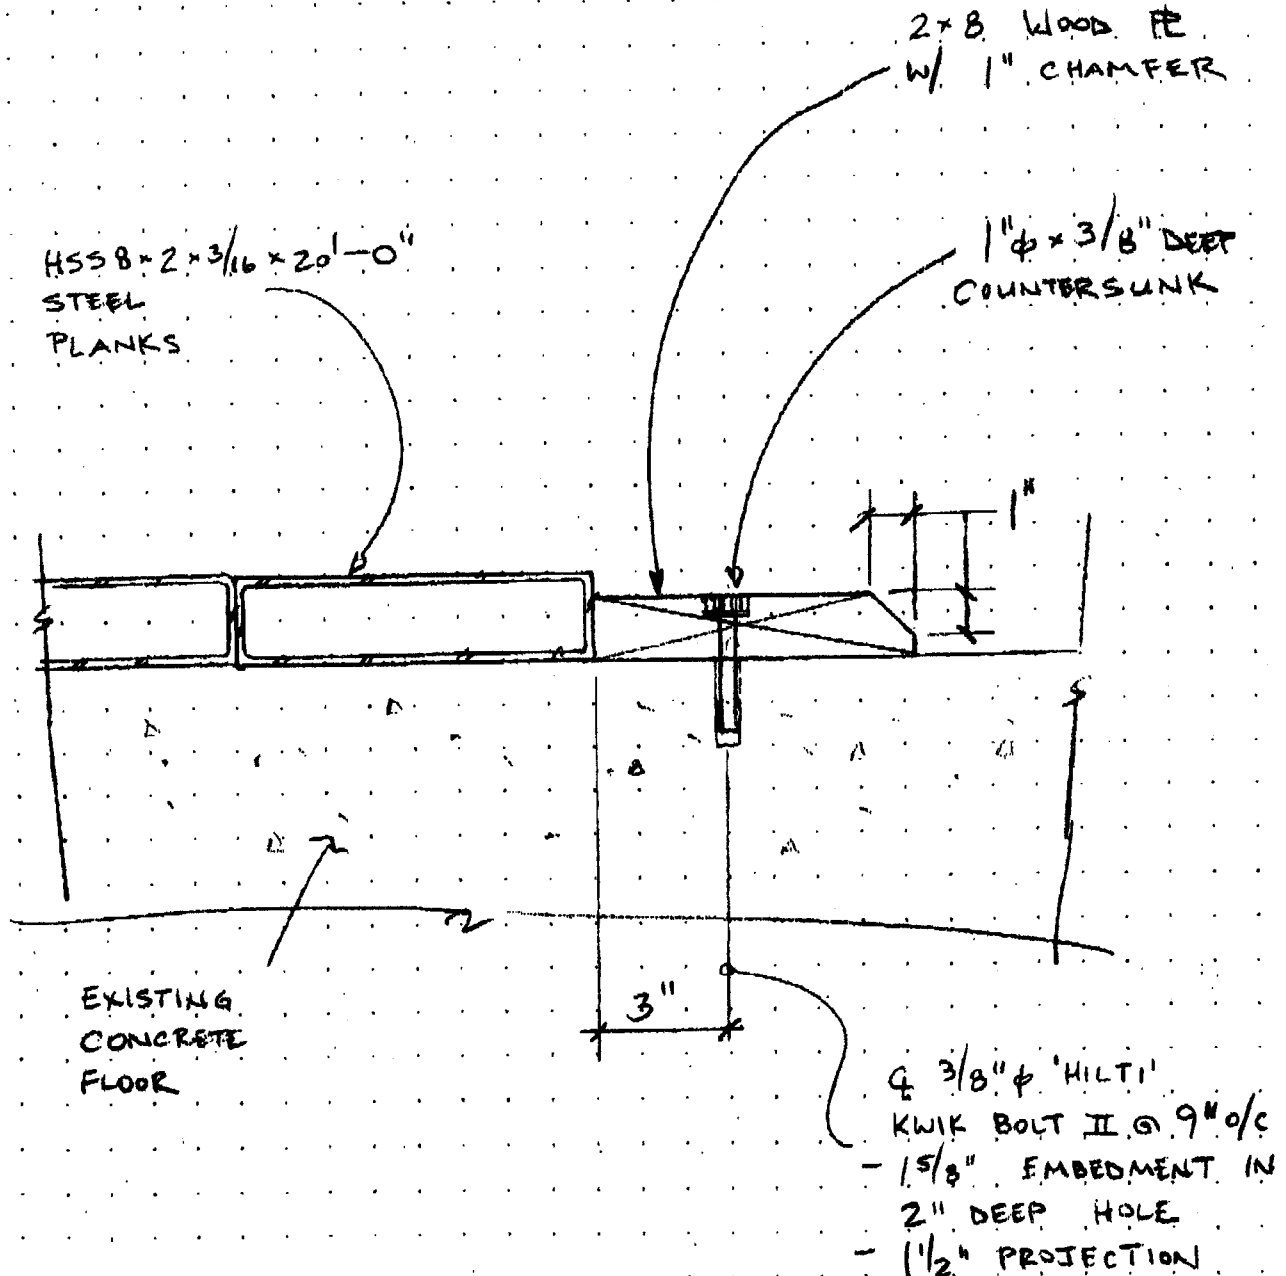 2×8 WOOD PL
W/ 1" CHAMFER
1"φ × 3/8" DEEP
COUNTERSUNK
HSS 8×2×3/16×20'-0"
STEEL
PLANKS
1"
EXISTING
CONCRETE
FLOOR
3"
℄ 3/8"φ 'HILTI'
KWIK BOLT II @ 9" o/c
- 1 5/8" EMBEDMENT IN
2" DEEP HOLE
- 1 1/2" PROJECTION